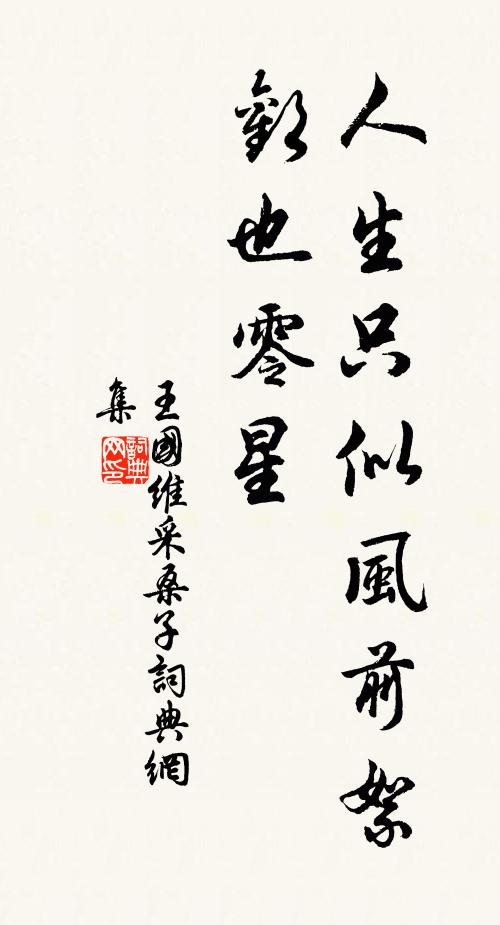 人生只似風前絮
歡也零星
王國維采桑子詞典網
集
詞典網印